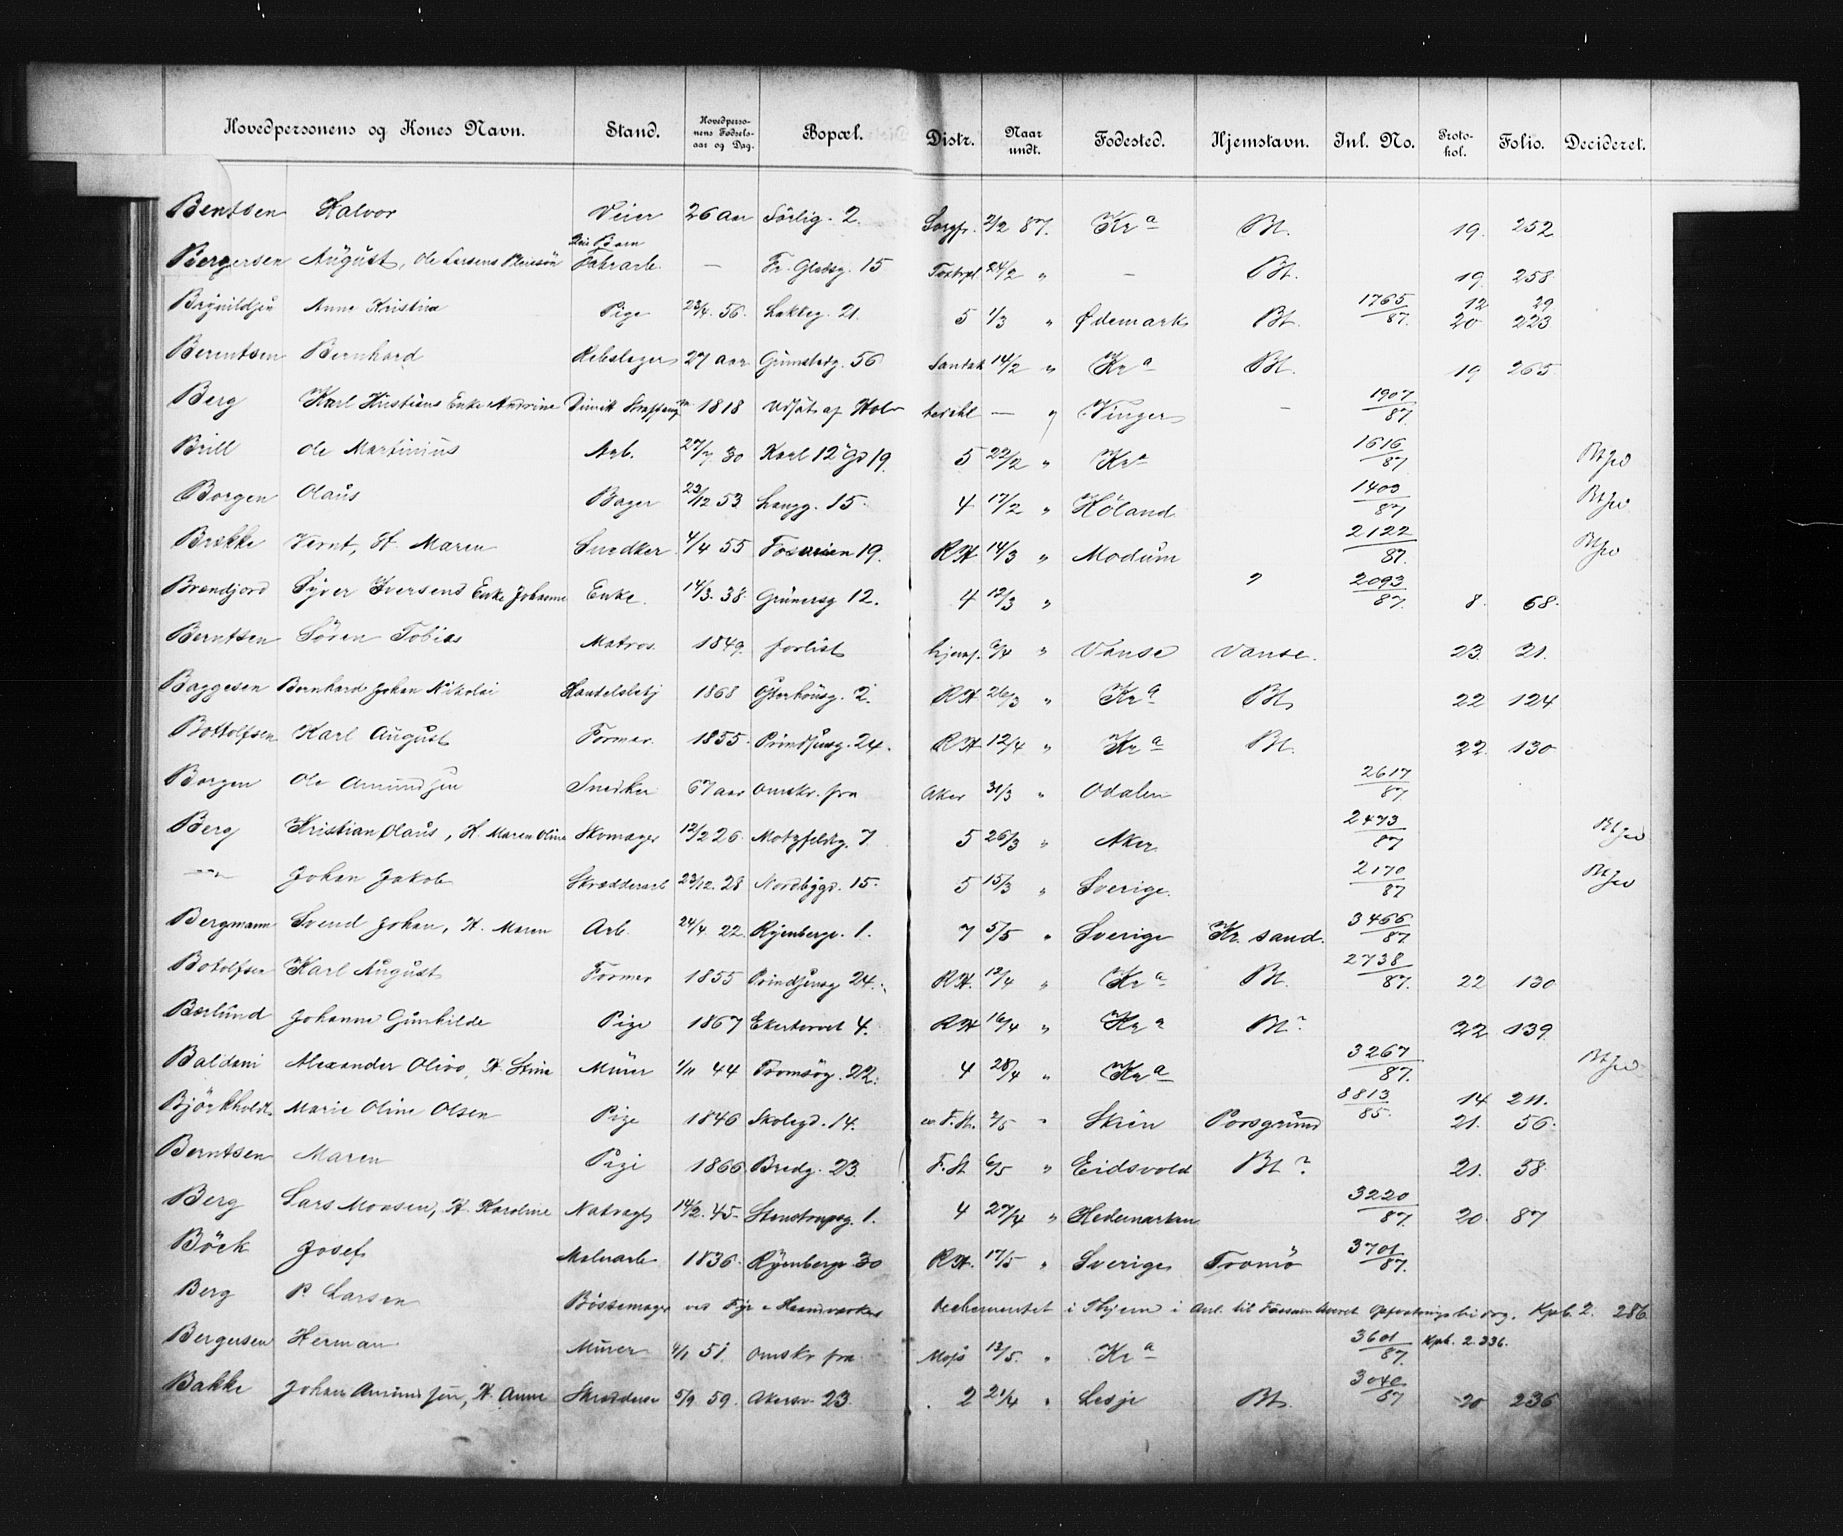 Hovedpersonens og Kones Navn. Stand. Hovedpersonens Fødselsaar og Dag. Bopæl. Distr. Naar undt. Fødested. Hjemstavn. Inl. No. Protokol. Folio. Decideret.
Bentsen Halvor 26 aar 2. Sorgfr. 2/2 87. Kr a Bt. 19. 252
Bergersen August, Ole Larsens — Fr. Gladsg. 15 24/2 " — Bt. 19. 258
Anne Kristine Pige 23/4. 56. Lakkeg. 21. 5 1/3 " Ødemark Bt. 1765/87. 12 29 20 223
Berentsen Bernhard Rebslager 27 aar Grønlandsg. 56 14/2 " Kr a Bt. 19 265
Berg Karl Kristians Enke Andrine 1818 Udsat af — " Vinger — 1907/87.
Brill Ole Martinius Arb. 27/7 30 Karl 12 Gd 19. 5 22/2 " Kr a 1616/87
Borgen Olaus Bager 23/12 53 Langg. 15. 4 17/2 " Höland 1403/87
Brekke Vernt, H. Maren Snedker 4/4 55 Fossveien 19. RH 14/3 " Modum 2122/87.
Brandjord Syver Iversens Enke Johanne Enke. 14/3. 38. Grüners g 12. 4 12/3 " ? 2093/87. 8. 68.
Berntsen Sören Tobias Matros. 1849. forlist 6/4 " Vanse Vanse. 23. 21.
Baggesen Bernhard Johan Nikolai Handelsbetj 1868 Østerhausg. 2. RH 26/3 " Kr a Bt 22 124
Bottolfsen Karl August Former. 1855. Prindsensg. 24. RH 12/4 " Kr a Bt. 22. 130
Borgen Ole Amundsen Snedker 67 aar Omskr. fra Aker 31/3 " Odalen 2617/87.
Berg Kristian Olaus, H. Maren Oline Skomager 12/2 26. Motzfeldtg. 7. 5 26/3 " Aker 2473/87
—"— Johan Jakob Skrædderarb 23/12. 28 Nordbygd. 15. 5 15/3 " Sverige. 2170/87
Bergmann Svend Johan, H. Maren Arb. 24/4. 22. Ryenbergv. 1. 7 5/5 " Sverige Kr. sand. 3466/87
Botolfsen Karl August Former 1855 Prindsensg 24. RH. 12/4 " Kr a Bt. 2738/87. 22 130
Bærlund Johanne Gunhilde Pige 1867 Ekertorvet 4. RH 16/4 " Kr a Bt? 22 139.
Baldani Alexander Olivo, H. Stine Murer 1/11 44 Tromsög. 22. 4 28/4 " Kr a 3267/87.
Björkholdt Marie Oline Olsen Pige 1846 Skolegd. 14. 2/5 " Skien Porsgrund 8813/85. 14 211. 21. 56.
Berntsen Maren Pige 1866. Bredg. 23. F. St 6/5 " Eidsvold Bt? 21. 58.
Berg Lars Monsen, H. Karoline Natvagt 14/2. 45. Stenstrupsg. 1. 4 27/4 " Hedemarken 3220/87. 20. 87
Böck Josef Malerarb. 1836. Ryenbergv. 30 RH. 17/5 " Sverige Tromö 3701/87.
Berg P. Larsen Bössemager ved i i Anl. til Kpb. 2. 286
Bergersen Herman Murer 4/1 51. omskr. fra Moss 13/5. " Kr a 3601/87. Kpb. 2. 336.
Bakke Johan Amundsen, H. Anne Skrædder 5/9 59. Akersv. 23. 2 21/4 " Lesje Bt. 3040/87 20 236